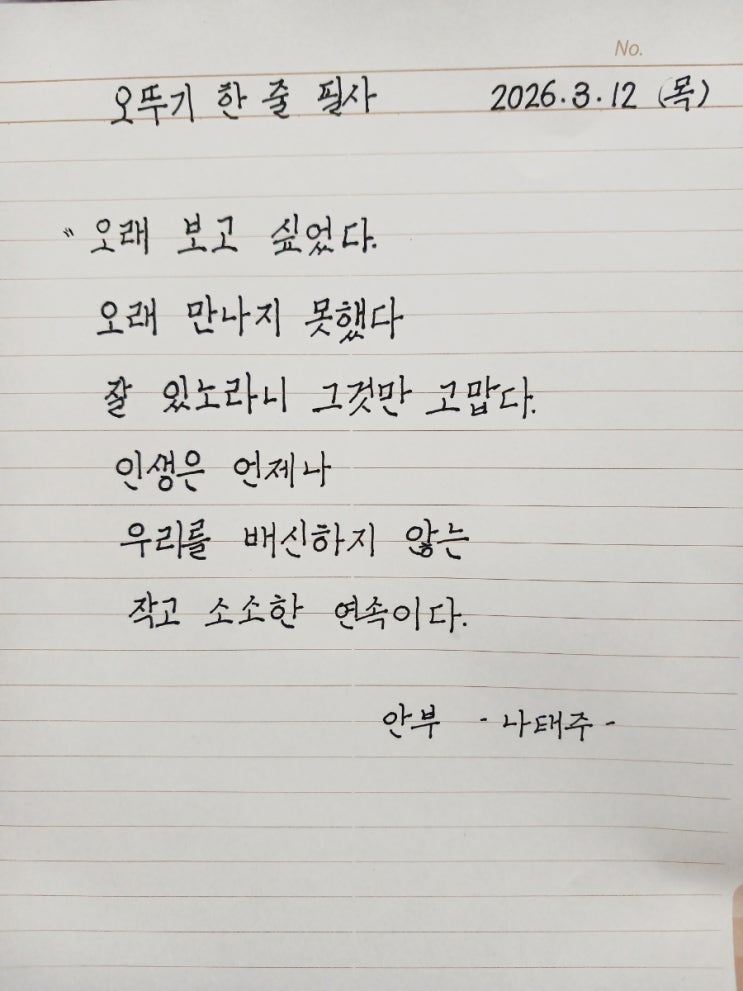 No.
오뚜기 한 줄 필사 2026.3.12 (목)
"오래 보고 싶었다.
오래 만나지 못했다
잘 있노라니 그것만 고맙다.
인생은 언제나
우리를 배신하지 않는
작고 소소한 연속이다.
안부 - 나태주 -